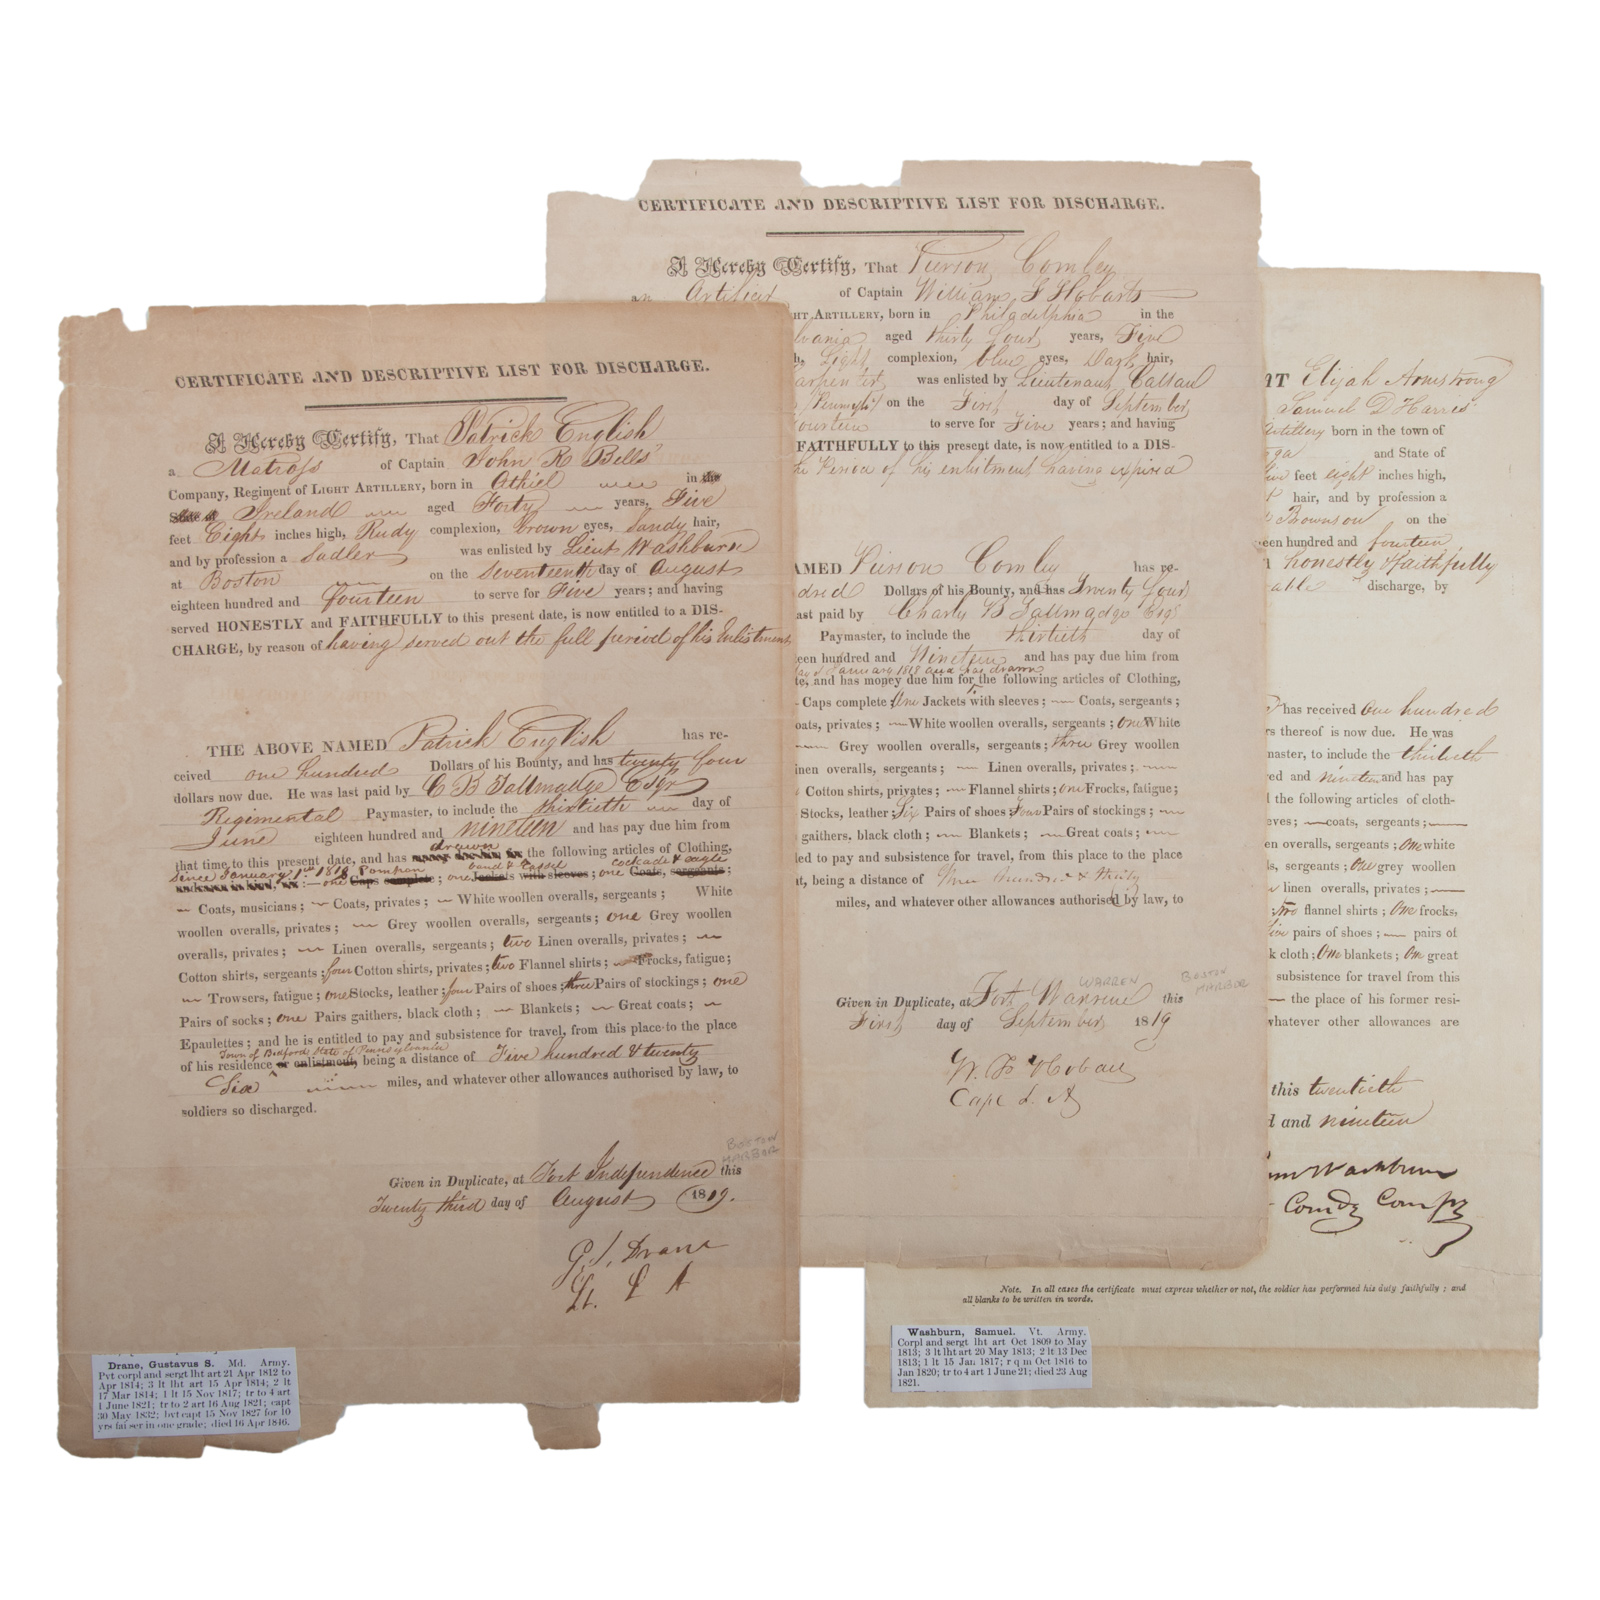 CERTIFICATE AND DESCRIPTIVE LIST FOR DISCHARGE.
I Hereby Certify, That Patrick English
a Matross of Captain John R Bells'
Company, Regiment of LIGHT ARTILLERY, born in Athiel in the
State of Ireland aged Forty years, Five
feet Eight inches high, Rudy complexion, brown eyes, Sandy hair,
and by profession a Sadler was enlisted by Lieut Washburn
at Boston on the Seventeenth day of August
eighteen hundred and fourteen to serve for Five years; and having
served HONESTLY and FAITHFULLY to this present date, is now entitled to a DIS-
CHARGE, by reason of having served out the full period of his Enlistment
THE ABOVE NAMED Patrick English has re-
ceived one hundred Dollars of his Bounty, and has twenty four
dollars now due. He was last paid by C B Tallmadge Esqr
Regimental Paymaster, to include the thirtieth day of
June eighteen hundred and nineteen and has pay due him from
that time to this present date, and has drawn the following articles of Clothing,
since January 1st 1818 Pompon band & Tassel cockade & eagle
:—one Caps complete; one Jackets with sleeves; one Coats, sergeants;
Coats, musicians; Coats, privates; White woollen overalls, sergeants; White
woollen overalls, privates; Grey woollen overalls, sergeants; one Grey woollen
overalls, privates; Linen overalls, sergeants; two Linen overalls, privates;
Cotton shirts, sergeants; four Cotton shirts, privates; two Flannel shirts; Frocks, fatigue;
Trowsers, fatigue; one Stocks, leather; four Pairs of shoes; three Pairs of stockings; one
Pairs of socks; one Pairs gaithers, black cloth; Blankets; Great coats;
Epaulettes; and he is entitled to pay and subsistence for travel, from this place to the place
Town of Bedford State of Pennsylvania
of his residence or enlistment, being a distance of Five hundred & twenty
Six miles, and whatever other allowances authorised by law, to
soldiers so discharged.
BOSTON
HARBOR
Given in Duplicate, at Fort Independence this
Twenty third day of August 1819.
G. S. Drane
Lt. L A
Drane, Gustavus S. Md. Army.
Pvt corpl and sergt lht art 21 Apr 1812 to
Apr 1814; 3 lt lht art 15 Apr 1814; 2 lt
17 Mar 1814; 1 lt 15 Nov 1817; tr to 4 art
1 June 1821; tr to 2 art 16 Aug 1821; capt
30 May 1832; bvt capt 15 Nov 1827 for 10
yrs fai ser in one grade; died 16 Apr 1846.
CERTIFICATE AND DESCRIPTIVE LIST FOR DISCHARGE.
I Hereby Certify, That Pierson Comley
an Artificer of Captain William F Hobarts
HT ARTILLERY, born in Philadelphia in the
lvania aged thirty four years, Five
h, Light complexion, blue eyes, Dark hair,
arpenter was enlisted by Lieutenant
on the First day of September
ourteen to serve for Five years; and having
FAITHFULLY to this present date, is now entitled to a DIS-
he Period of his enlistment having expired
AMED Pierson Comley has re-
dred Dollars of his Bounty, and has Twenty four
ast paid by Charls B Tallmadge Esqr
Paymaster, to include the thirtieth day of
een hundred and Nineteen and has pay due him from
January 1818 and has drawn
te, and has money due him for the following articles of Clothing,
Caps complete; One Jackets with sleeves; Coats, sergeants;
oats, privates; White woollen overalls, sergeants; one White
Grey woollen overalls, sergeants; three Grey woollen
inen overalls, sergeants; Linen overalls, privates;
Cotton shirts, privates; Flannel shirts; one Frocks, fatigue;
Stocks, leather; Six Pairs of shoes; Four Pairs of stockings;
gaithers, black cloth; Blankets; Great coats;
led to pay and subsistence for travel, from this place to the place
t, being a distance of Three hundred & thirty
miles, and whatever other allowances authorised by law, to
WARREN BOSTON
HARBOR
Given in Duplicate, at Fort Warren this
First day of September 1819
W. F Hobart
Capt L. A
NT Elijah Armstrong
Samuel D Harris'
Artillery born in the town of
ga and State of
five feet eight inches high,
hair, and by profession a
Brownson on the
een hundred and fourteen
honestly & faithfully
able discharge, by
has received One hundred
rs thereof is now due. He was
master, to include the thirtieth
red and nineteen and has pay
d the following articles of cloth-
eves; coats, sergeants;
en overalls, sergeants; One white
ls, sergeants; One grey woollen
linen overalls, privates;
; two flannel shirts; One frocks,
five pairs of shoes; pairs of
k cloth; One blankets; One great
subsistence for travel from this
the place of his former resi-
whatever other allowances are
this twentieth
d and nineteen
Washburn
Comdg Compy
Note. In all cases the certificate must express whether or not, the soldier has performed his duty faithfully; and
all blanks to be written in words.
Washburn, Samuel. Vt. Army.
Corpl and sergt lht art Oct 1809 to May
1813; 3 lt lht art 20 May 1813; 2 lt 13 Dec
1813; 1 lt 15 Jan 1817; r q m Oct 1816 to
Jan 1820; tr to 4 art 1 June 21; died 23 Aug
1821.